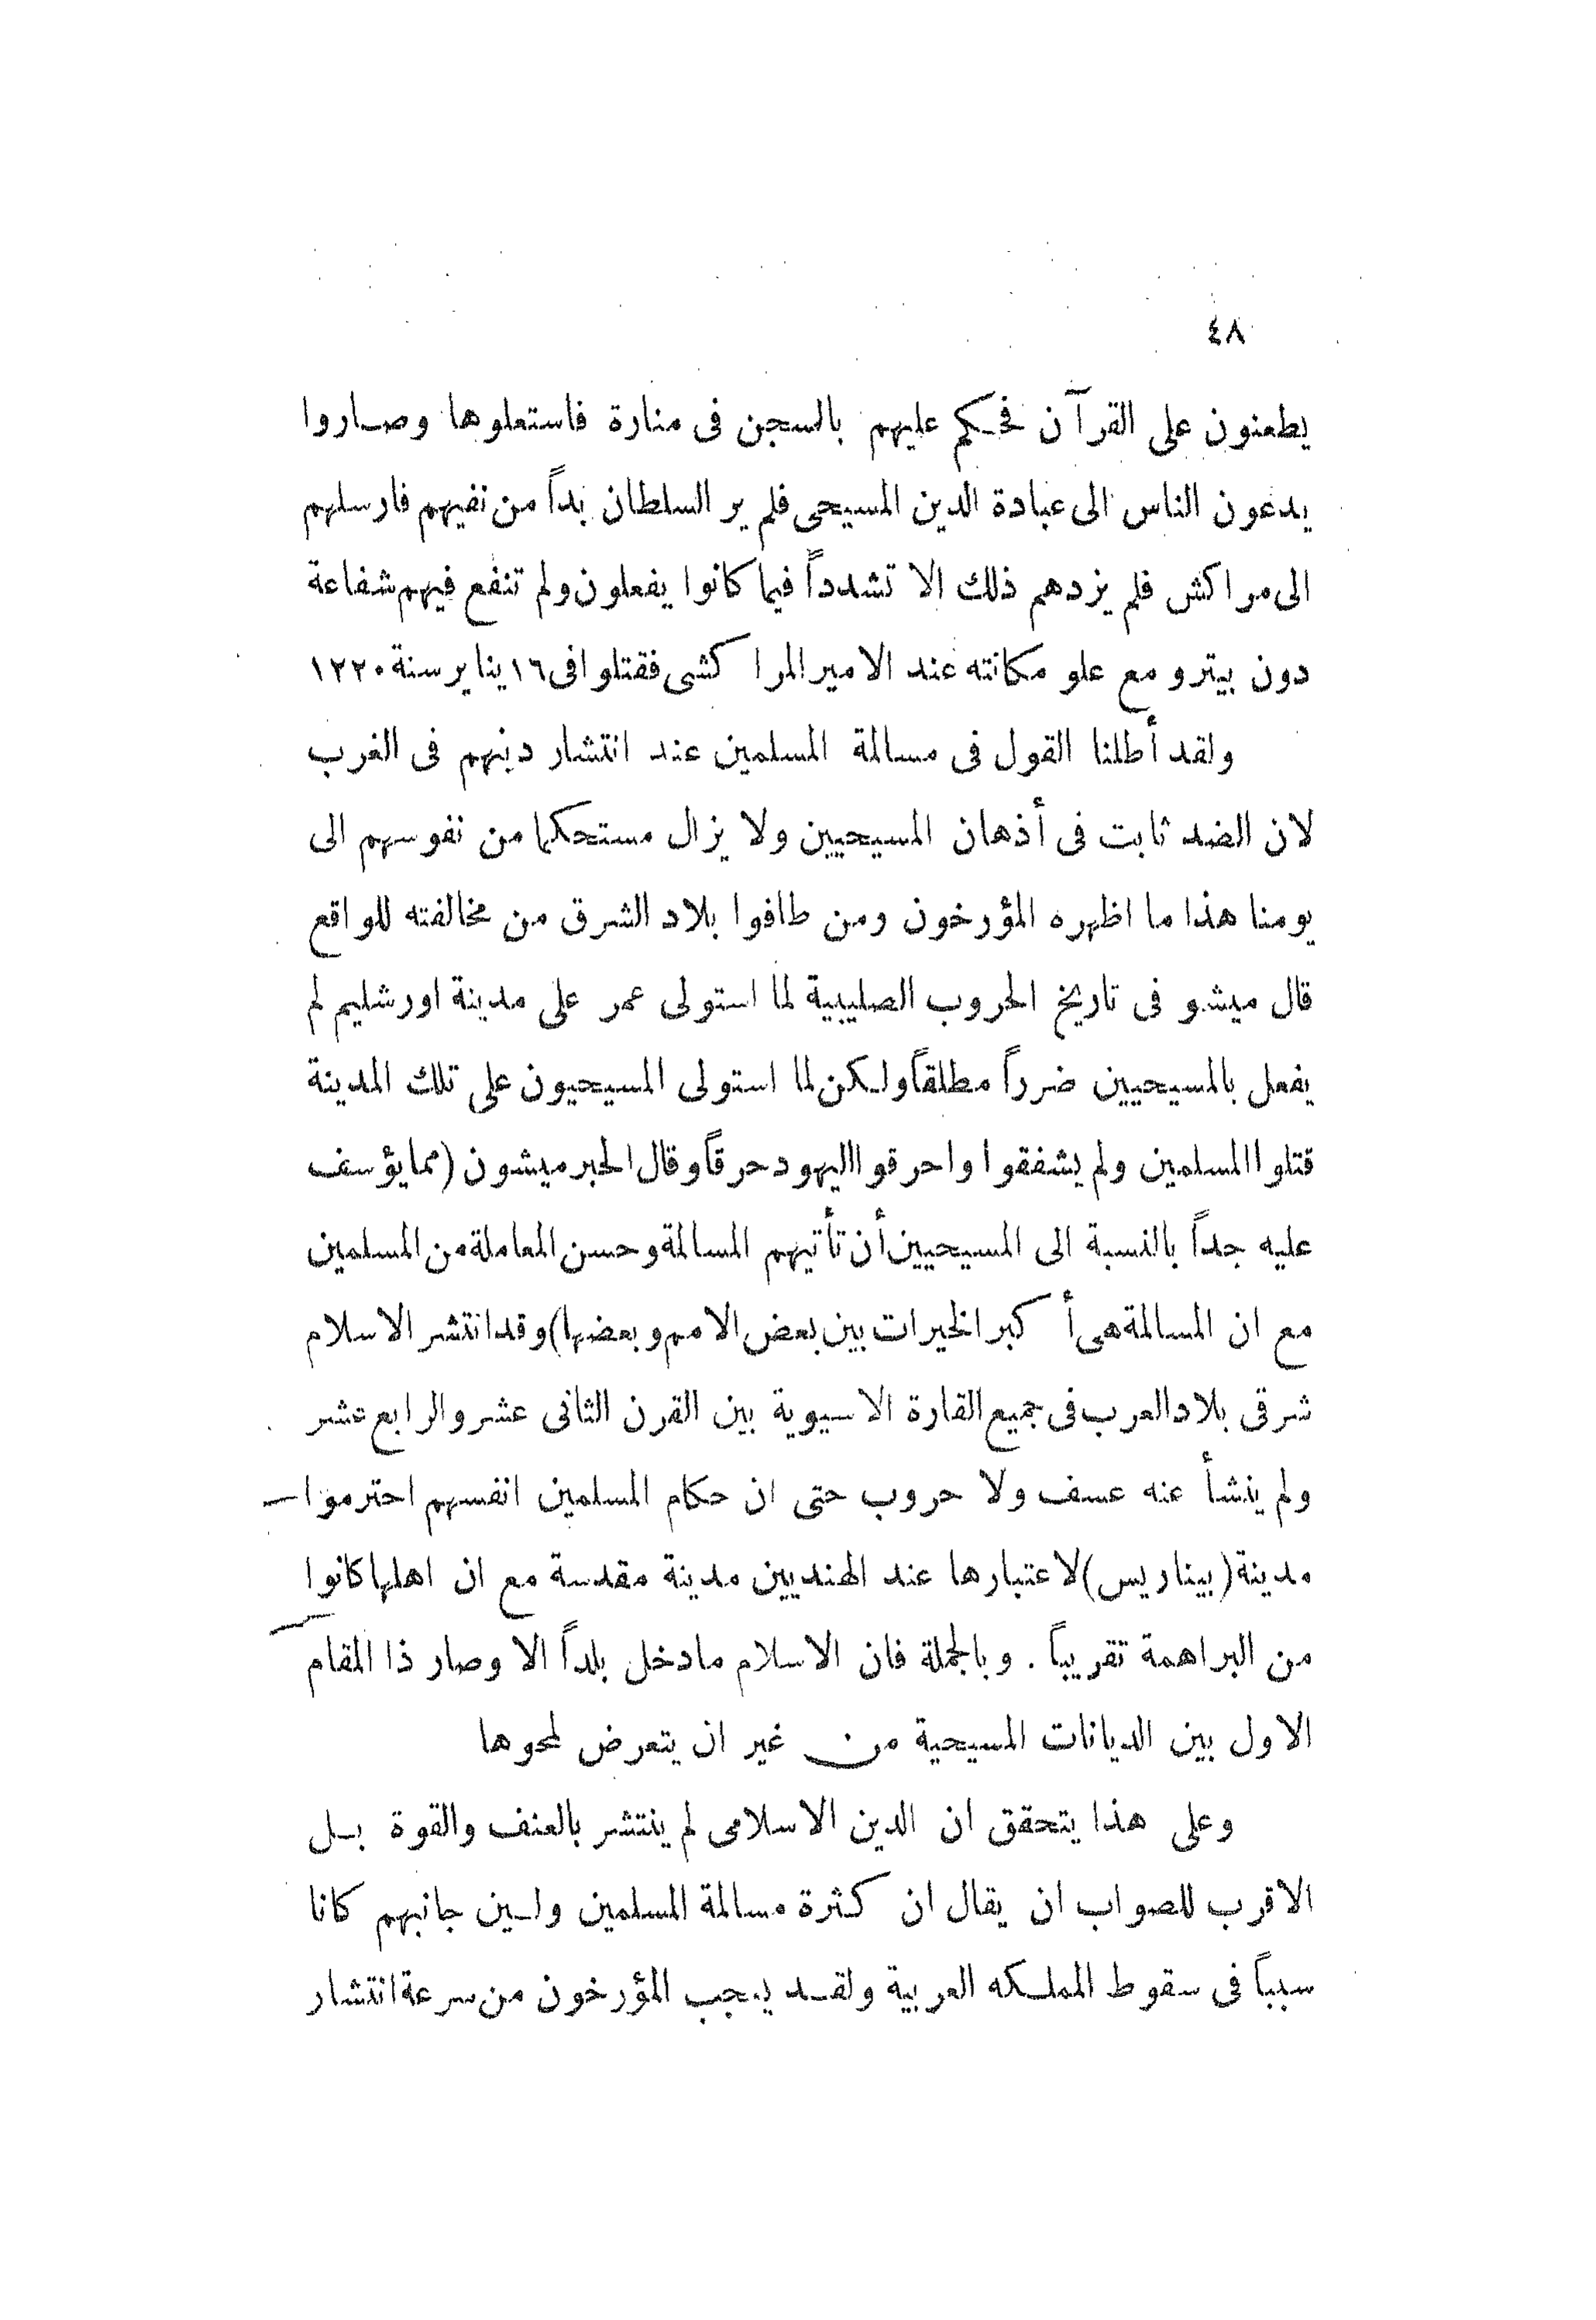 ٤٨
يطعنون على القرآن فحكم عليهم بالسجن فى منارة فاستعلوها وصاروا
يدعون الناس الى عبادة الدين المسيحى فلم ير السلطان بداً من نفيهم فارسلهم
الى مراكش فلم يزدهم ذلك الا تشدداً فيما كانوا يفعلون ولم تنفع فيهم شفاعة
دون بيترو مع علو مكانته عند الامير المراكشى فقتلوا فى ١٦ يناير سنة ١٢٢٠
ولقد أطلنا القول فى مسالمة المسلمين عند انتشار دينهم فى الغرب
لان الضد ثابت فى أذهان المسيحيين ولا يزال مستحكما من نفوسهم الى
يومنا هذا ما اظهره المؤرخون ومن طافوا بلاد الشرق من مخالفته للواقع
قال ميشو فى تاريخ الحروب الصليبية لما استولى عمر على مدينة اورشليم لم
يفعل بالمسيحيين ضرراً مطلقاً ولكن لما استولى المسيحيون على تلك المدينة
قتلوا المسلمين ولم يشفقوا واحرقوا اليهود حرقاً وقال الحبر ميشون (مما يؤسف
عليه جداً بالنسبة الى المسيحيين أن تأتيهم المسالمة وحسن المعاملة من المسلمين
مع ان المسالمة هى أكبر الخيرات بين بعض الامم وبعضها) وقد انتشر الاسلام
شرقى بلاد العرب فى جميع القارة الاسيوية بين القرن الثانى عشر والرابع عشر
ولم ينشأ عنه عسف ولا حروب حتى ان حكام المسلمين انفسهم احترموا
مدينة (بيناريس) لاعتبارها عند الهنديين مدينة مقدسة مع ان اهلها كانوا
من البراهمة تقريباً . وبالجملة فان الاسلام مادخل بلداً الا وصار ذا المقام
الاول بين الديانات المسيحية من غير ان يتعرض لمحوها
وعلى هذا يتحقق ان الدين الاسلامى لم ينتشر بالعنف والقوة بل
الاقرب للصواب ان يقال ان كثرة مسالمة المسلمين ولين جانبهم كانا
سبباً فى سقوط المملكه العربية ولقد يعجب المؤرخون من سرعة انتشار